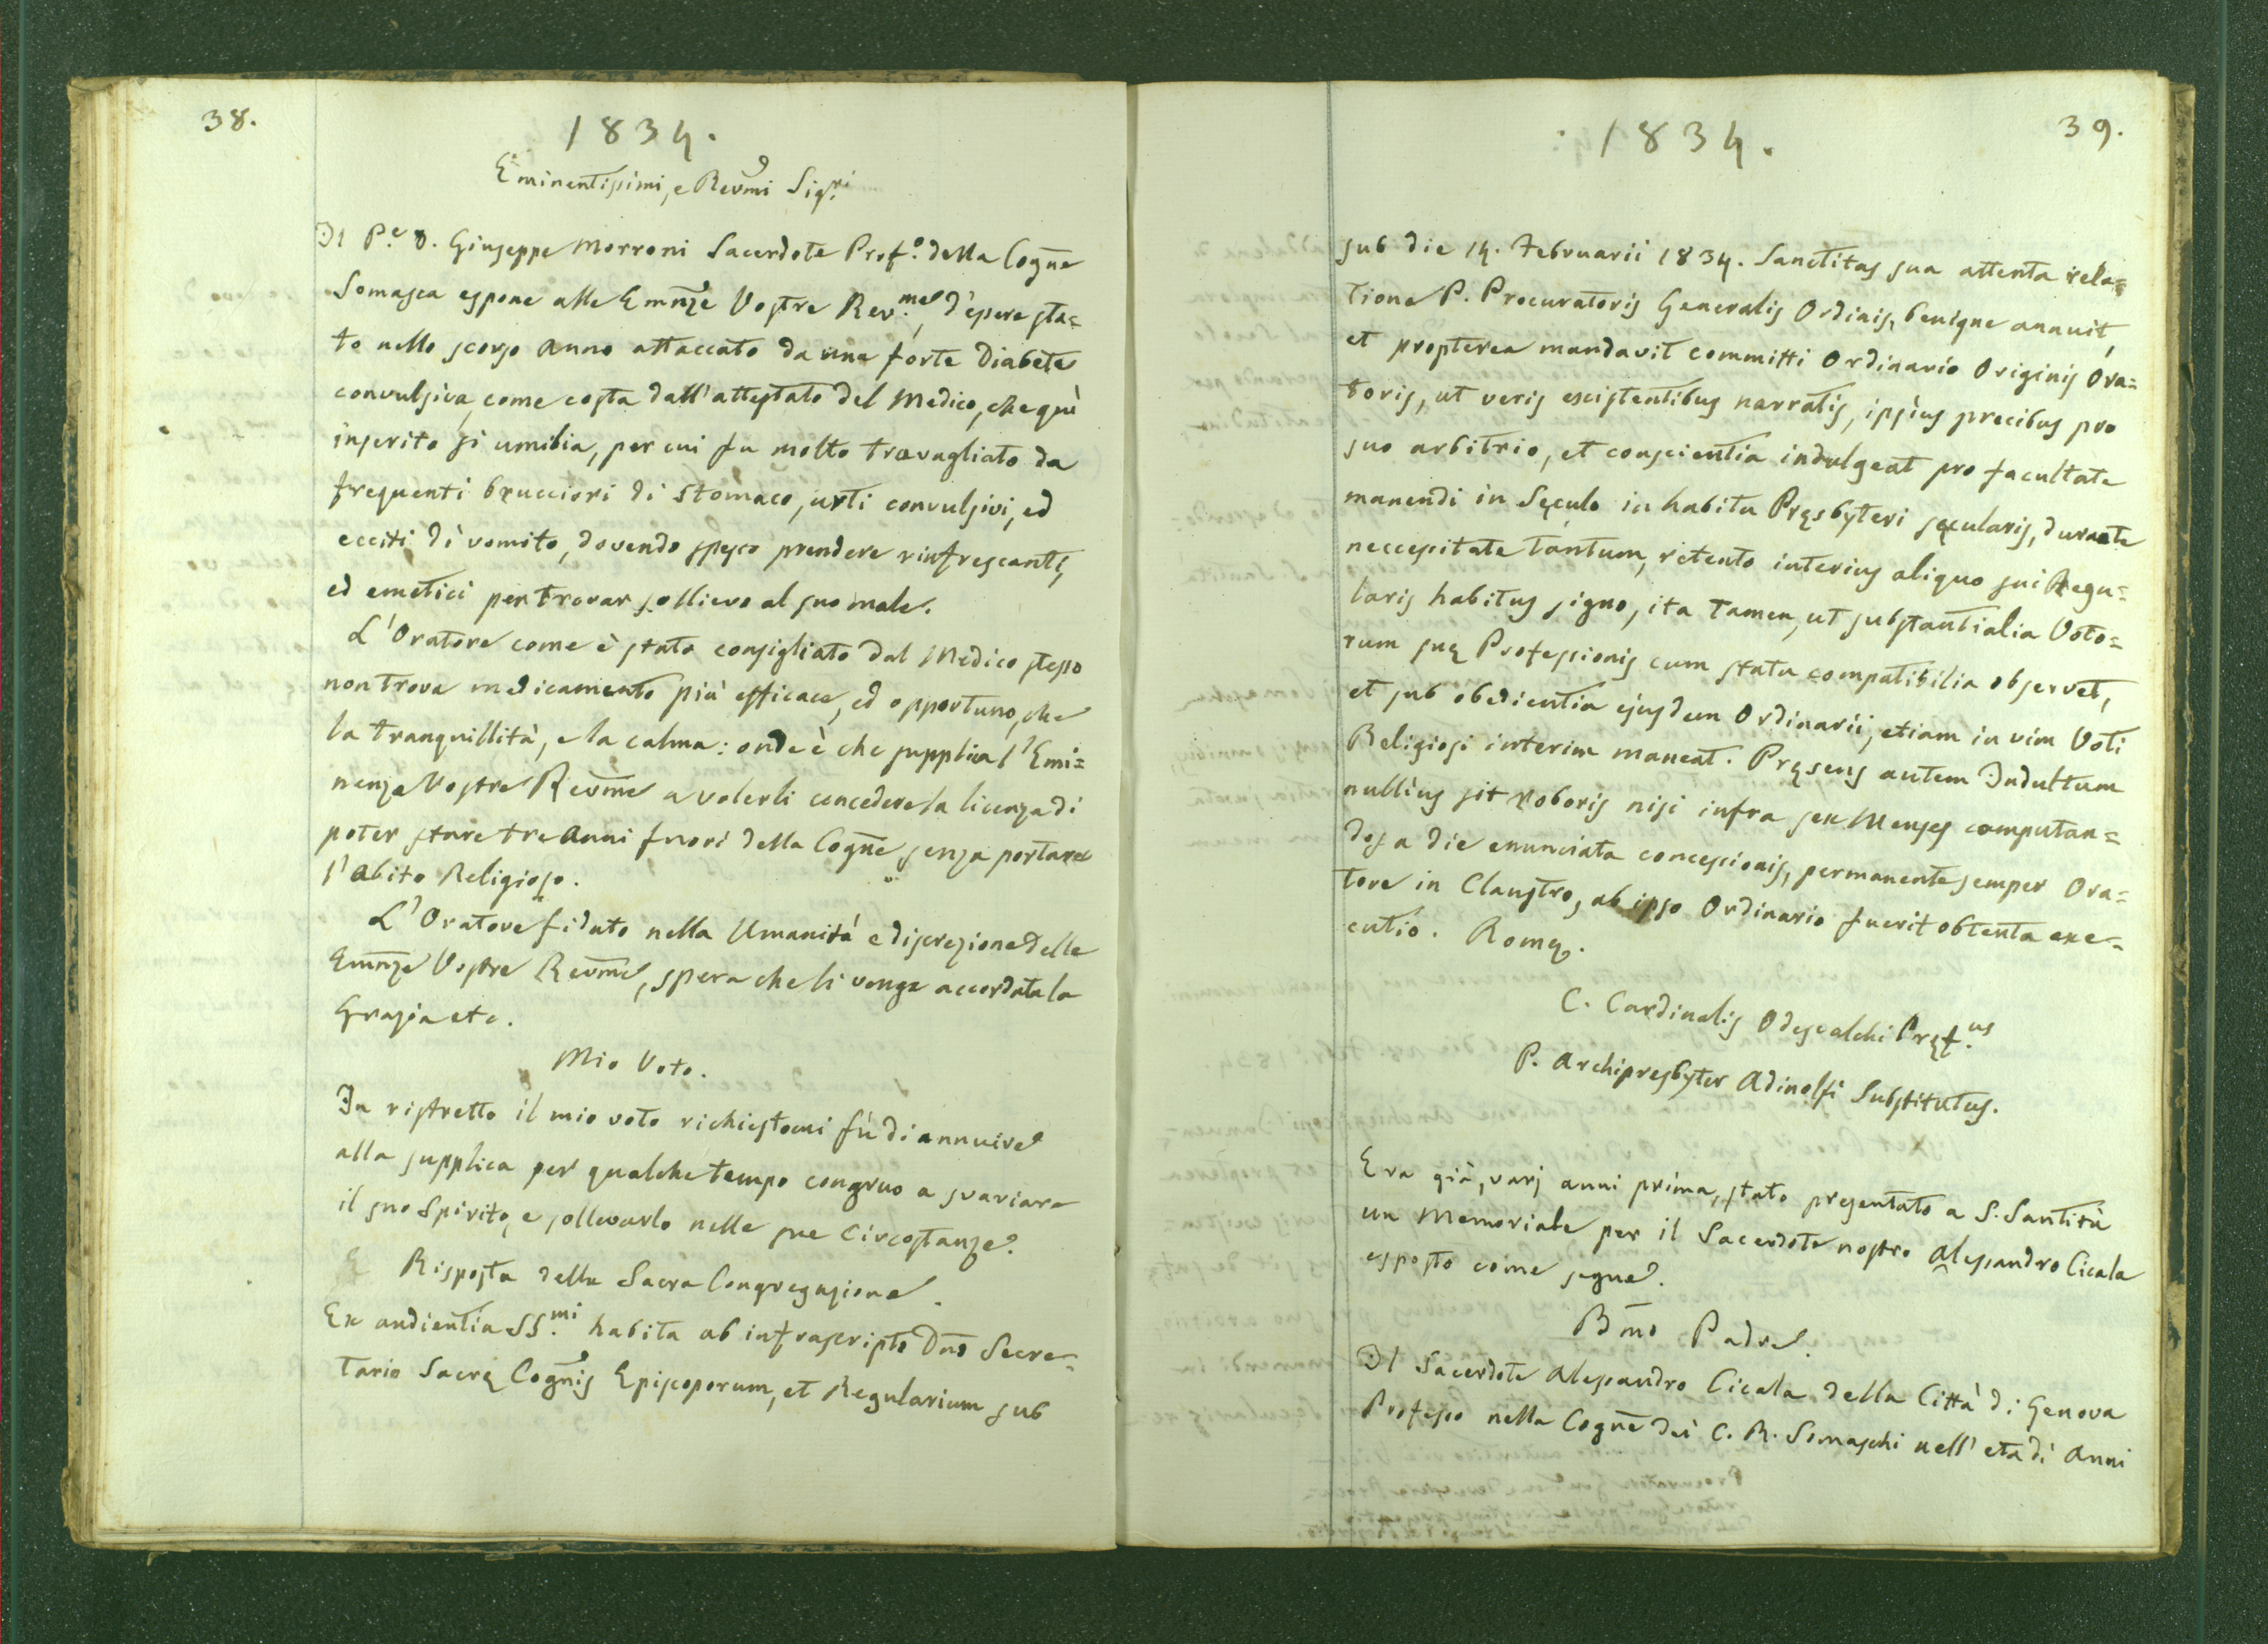 38.
1834.
Eminentissimi, e Revmi Sig.ri
Il P.e D. Giuseppe Morroni Sacerdote Prof.o della Cogne
Somasca espone alle Emnze Vostre Rev.me, d'essere sta=
to nello scorso Anno attaccato da una forte Diabete
convulsiva, come costa dall'attestato del Medico, che quì
inserito si umilia, per cui fu molto travagliato da
frequenti brucciori di Stomaco, urti convulsivi, ed
ecciti di vomito, dovendo spesso prendere rinfrescanti,
ed emetici per trovar sollievo al suo male.
L'Oratore come è stato consigliato dal Medico stesso
non trova medicamento più efficace, ed opportuno, che
la tranquillità, e la calma: onde è che supplica l'Emi=
nenze Vostre Revme a volerli concedere la licenza di
poter stare tre Anni fuori della Cogne senza portare
l'abito Religioso.
L'Oratore fidato nella Umanità e discrezione delle
Emnze Vostre Revme, spera che li venga accordata la
Grazia etc.
Mio Voto.
In ristretto il mio voto richiestomi fù di annuire
alla supplica per qualche tempo congruo a svariare
il suo Spirito, e sollevarlo nelle sue Circostanze.
Risposta della Sacra Congregazione.
Ex audientia SS.mi habita ab infrascripto Dno Secre=
tario Sacrę Cognis Episcoporum, et Regularium sub
1834.
39.
sub die 14. Februarii 1834. Sanctitas sua attenta rela=
tione P. Procuratoris Generalis Ordinis, benigne annuit,
et propterea mandavit committi Ordinario Originis Ora=
toris, ut veris existentibus narratis, ipsius precibus pro
suo arbitrio, et conscientia indulgeat pro facultate
manendi in Sęculo in habitu Pręsbyteri sęcularis, durante
neccessitate tantum, retento interius aliquo sui Regu=
laris habitus signo, ita tamen, ut substantialia Voto=
rum suę Professionis cum statu compatibilia observet,
et sub obedientia ejusdem Ordinarii, etiam in vim Voti
Religiosi interim maneat. Pręsens autem Indultum
nullius sit roboris nisi infra sex Menses computan=
dos a die enunciata concessionis, permanente semper Ora=
tore in Claustro, ab ipso Ordinario fuerit obtenta exe=
cutio. Romę.
C. Cardinalis Odescalchi Pręf.us
P. Archipresbyter Adinolfi Substitutus.
Era già, varj anni prima, stato presentato a S. Santità
un Memoriale per il Sacerdote nostro Alessandro Cicala
esposto come segue.
Bmo Padre.
Il Sacerdote Alessandro Cicala della Città di Genova
Professo nella Cogne dei C. R. Somaschi nell'eta di Anni